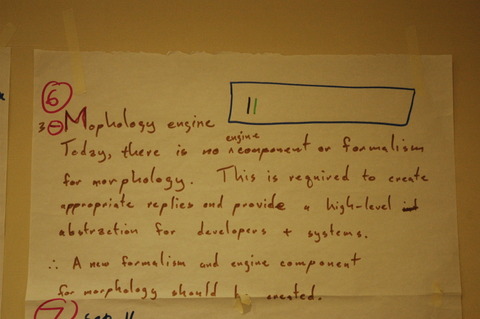 6
3 Mophology engine
engine
Today, there is no component or formalism
for morphology. This is required to create
appropriate replies and provide a high-level
abstraction for developers + systems.
∴ A new formalism and engine component
for morphology should be created.
7